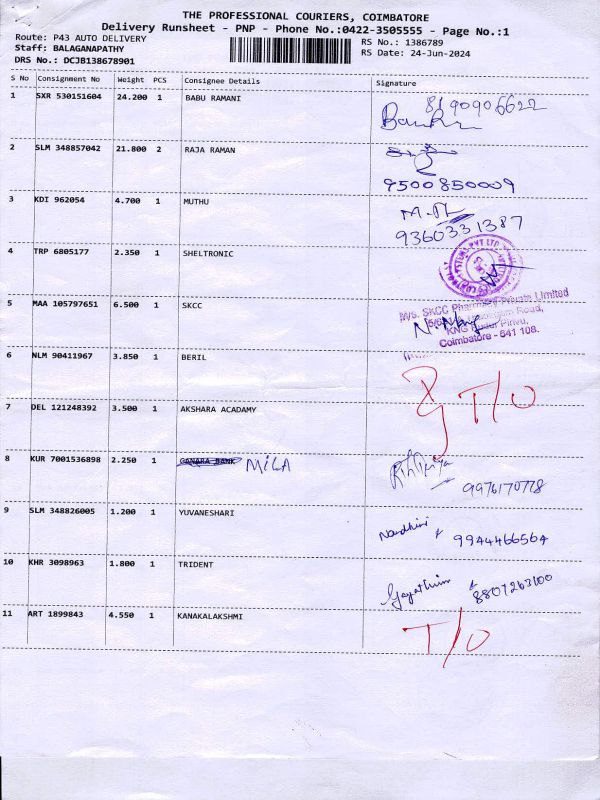 THE PROFESSIONAL COURIERS, COIMBATORE
Delivery Runsheet - PNP - Phone No.:0422-3505555 - Page No.:1
Route: P43 AUTO DELIVERY
RS No.: 1386789
Staff: BALAGANAPATHY
RS Date: 24-Jun-2024
DRS No.: DCJB138678901
S No Consignment No Weight PCS Consignee Details Signature
1 SXR 530151604 24.200 1 BABU RAMANI
8190906622
2 SLM 348857042 21.800 2 RAJA RAMAN
9500850009
3 KDI 962054 4.700 1 MUTHU
9360331387
4 TRP 6805177 2.350 1 SHELTRONIC
5 MAA 105797651 6.500 1 SKCC
M/s. SKCC Pharmacy Private Limited
Road,
KNG Pudur Pirivu,
Coimbatore - 641 108.
6 NLM 90411967 3.850 1 BERIL
T/O
7 DEL 121248392 3.500 1 AKSHARA ACADAMY
8 KUR 7001536898 2.250 1 CANARA BANK MILA
9976170778
9 SLM 348826005 1.200 1 YUVANESHARI
Nandhini 9944466564
10 KHR 3098963 1.800 1 TRIDENT
8807263100
11 ART 1899843 4.550 1 KANAKALAKSHMI
T/O